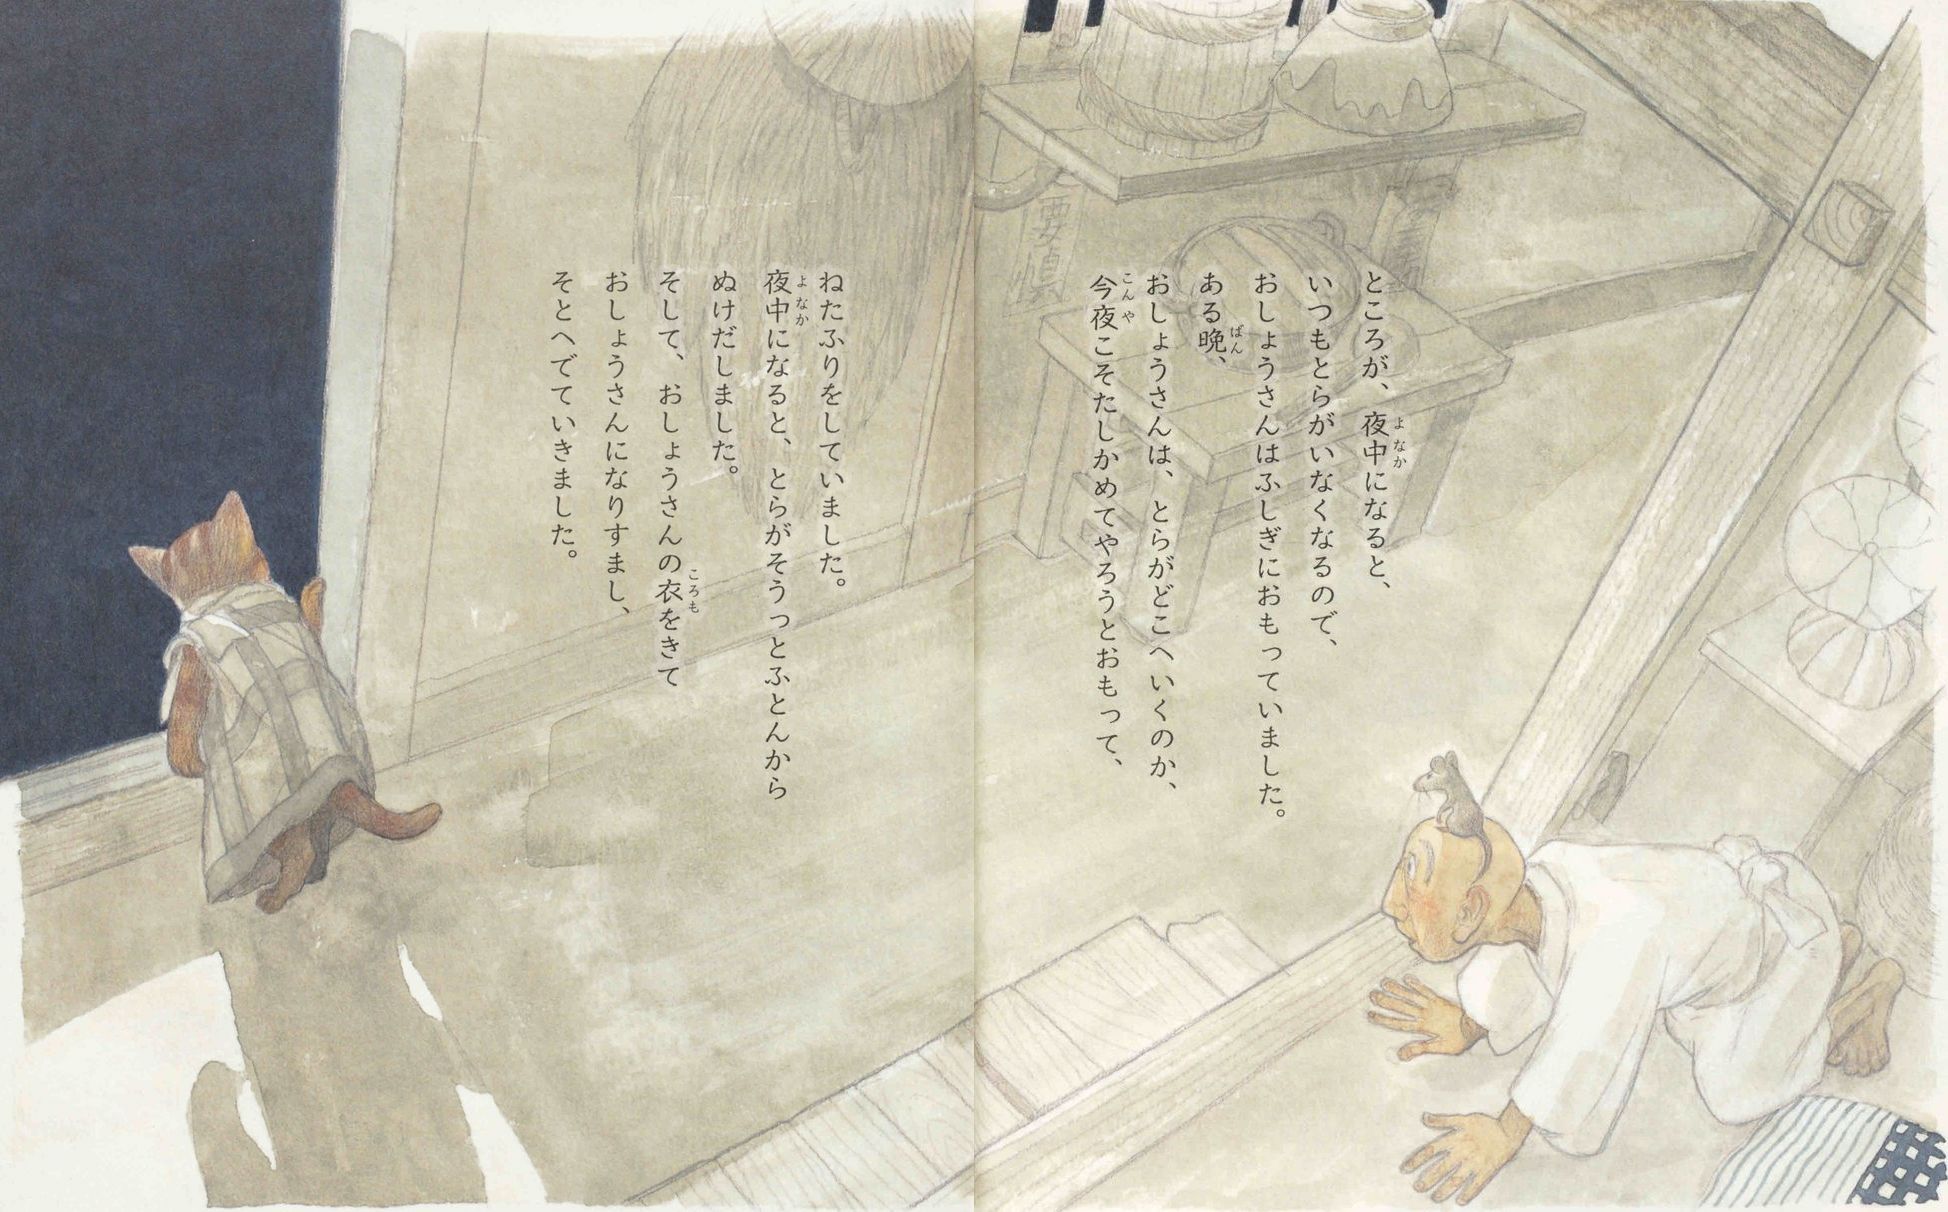 ところが、夜中になると、
いつもとらがいなくなるので、
おしょうさんはふしぎにおもっていました。
ある晩、
おしょうさんは、とらがどこへいくのか、
今夜こそたしかめてやろうとおもって、
ねたふりをしていました。
夜中になると、とらがそうっとふとんから
ぬけだしました。
そして、おしょうさんの衣をきて
おしょうさんになりすまし、
そとへでていきました。